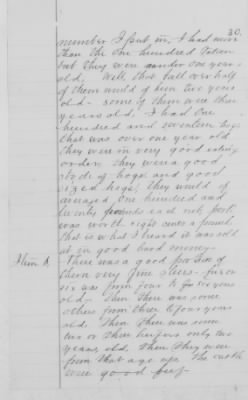 30.
number I put in. I had more
than the one hundred
but they were under one year
old. Well that fall over half
of them would of been two years
old - some of them were three
years old. I had one
hundred and seventeen hogs
that was over one year old
they were in very good eating
order. they were a good
of hogs and good
sized hogs, they would of
averaged one hundred and
twenty pounds each net pork
was worth eight cents a pound
that is what I heard it was sold
at in good hard money.
Item 8. There was a good portion of
them very fine steers - five or
six was from four to six years
old. Then there was some
others from three to four years
old. Then there was some
two or three heifers only two
years old. Then they were
from that age up. The cattle
were good beef